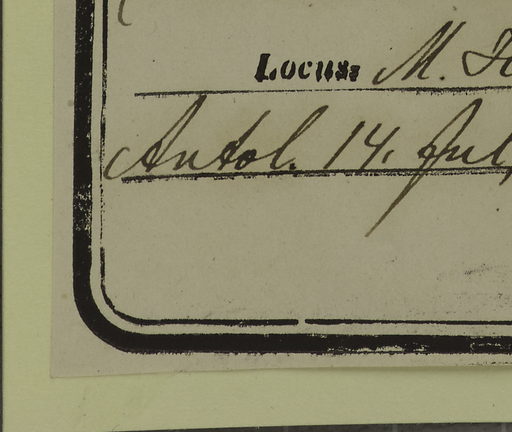 Locus: M.
Antol. 14. Jul